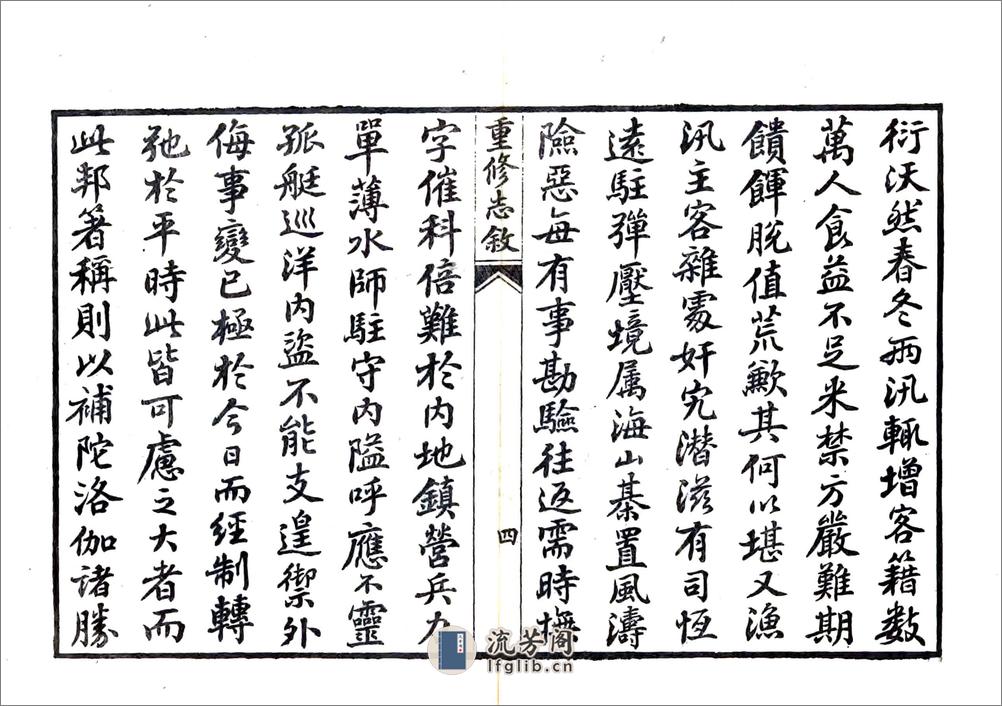 衍沃然春冬两汛輒增客籍数
萬人食益不足米禁方嚴難期
饋餫脫值荒歉其何以堪又漁
汛主客雜處奸宄潛滋有司恆
遠駐彈壓境属海山棊置風濤
險惡每有事勘驗往返需時撫
重修志敘
四
字催科倍難於內地鎮營兵力
單薄水師駐守內隘呼應不靈
孤艇巡洋內盜不能支遑禦外
侮事變已極於今日而經制轉
弛於平時此皆可慮之大者而
此邦著稱則以補陀洛伽諸勝
流芳閣
lfglib.cn